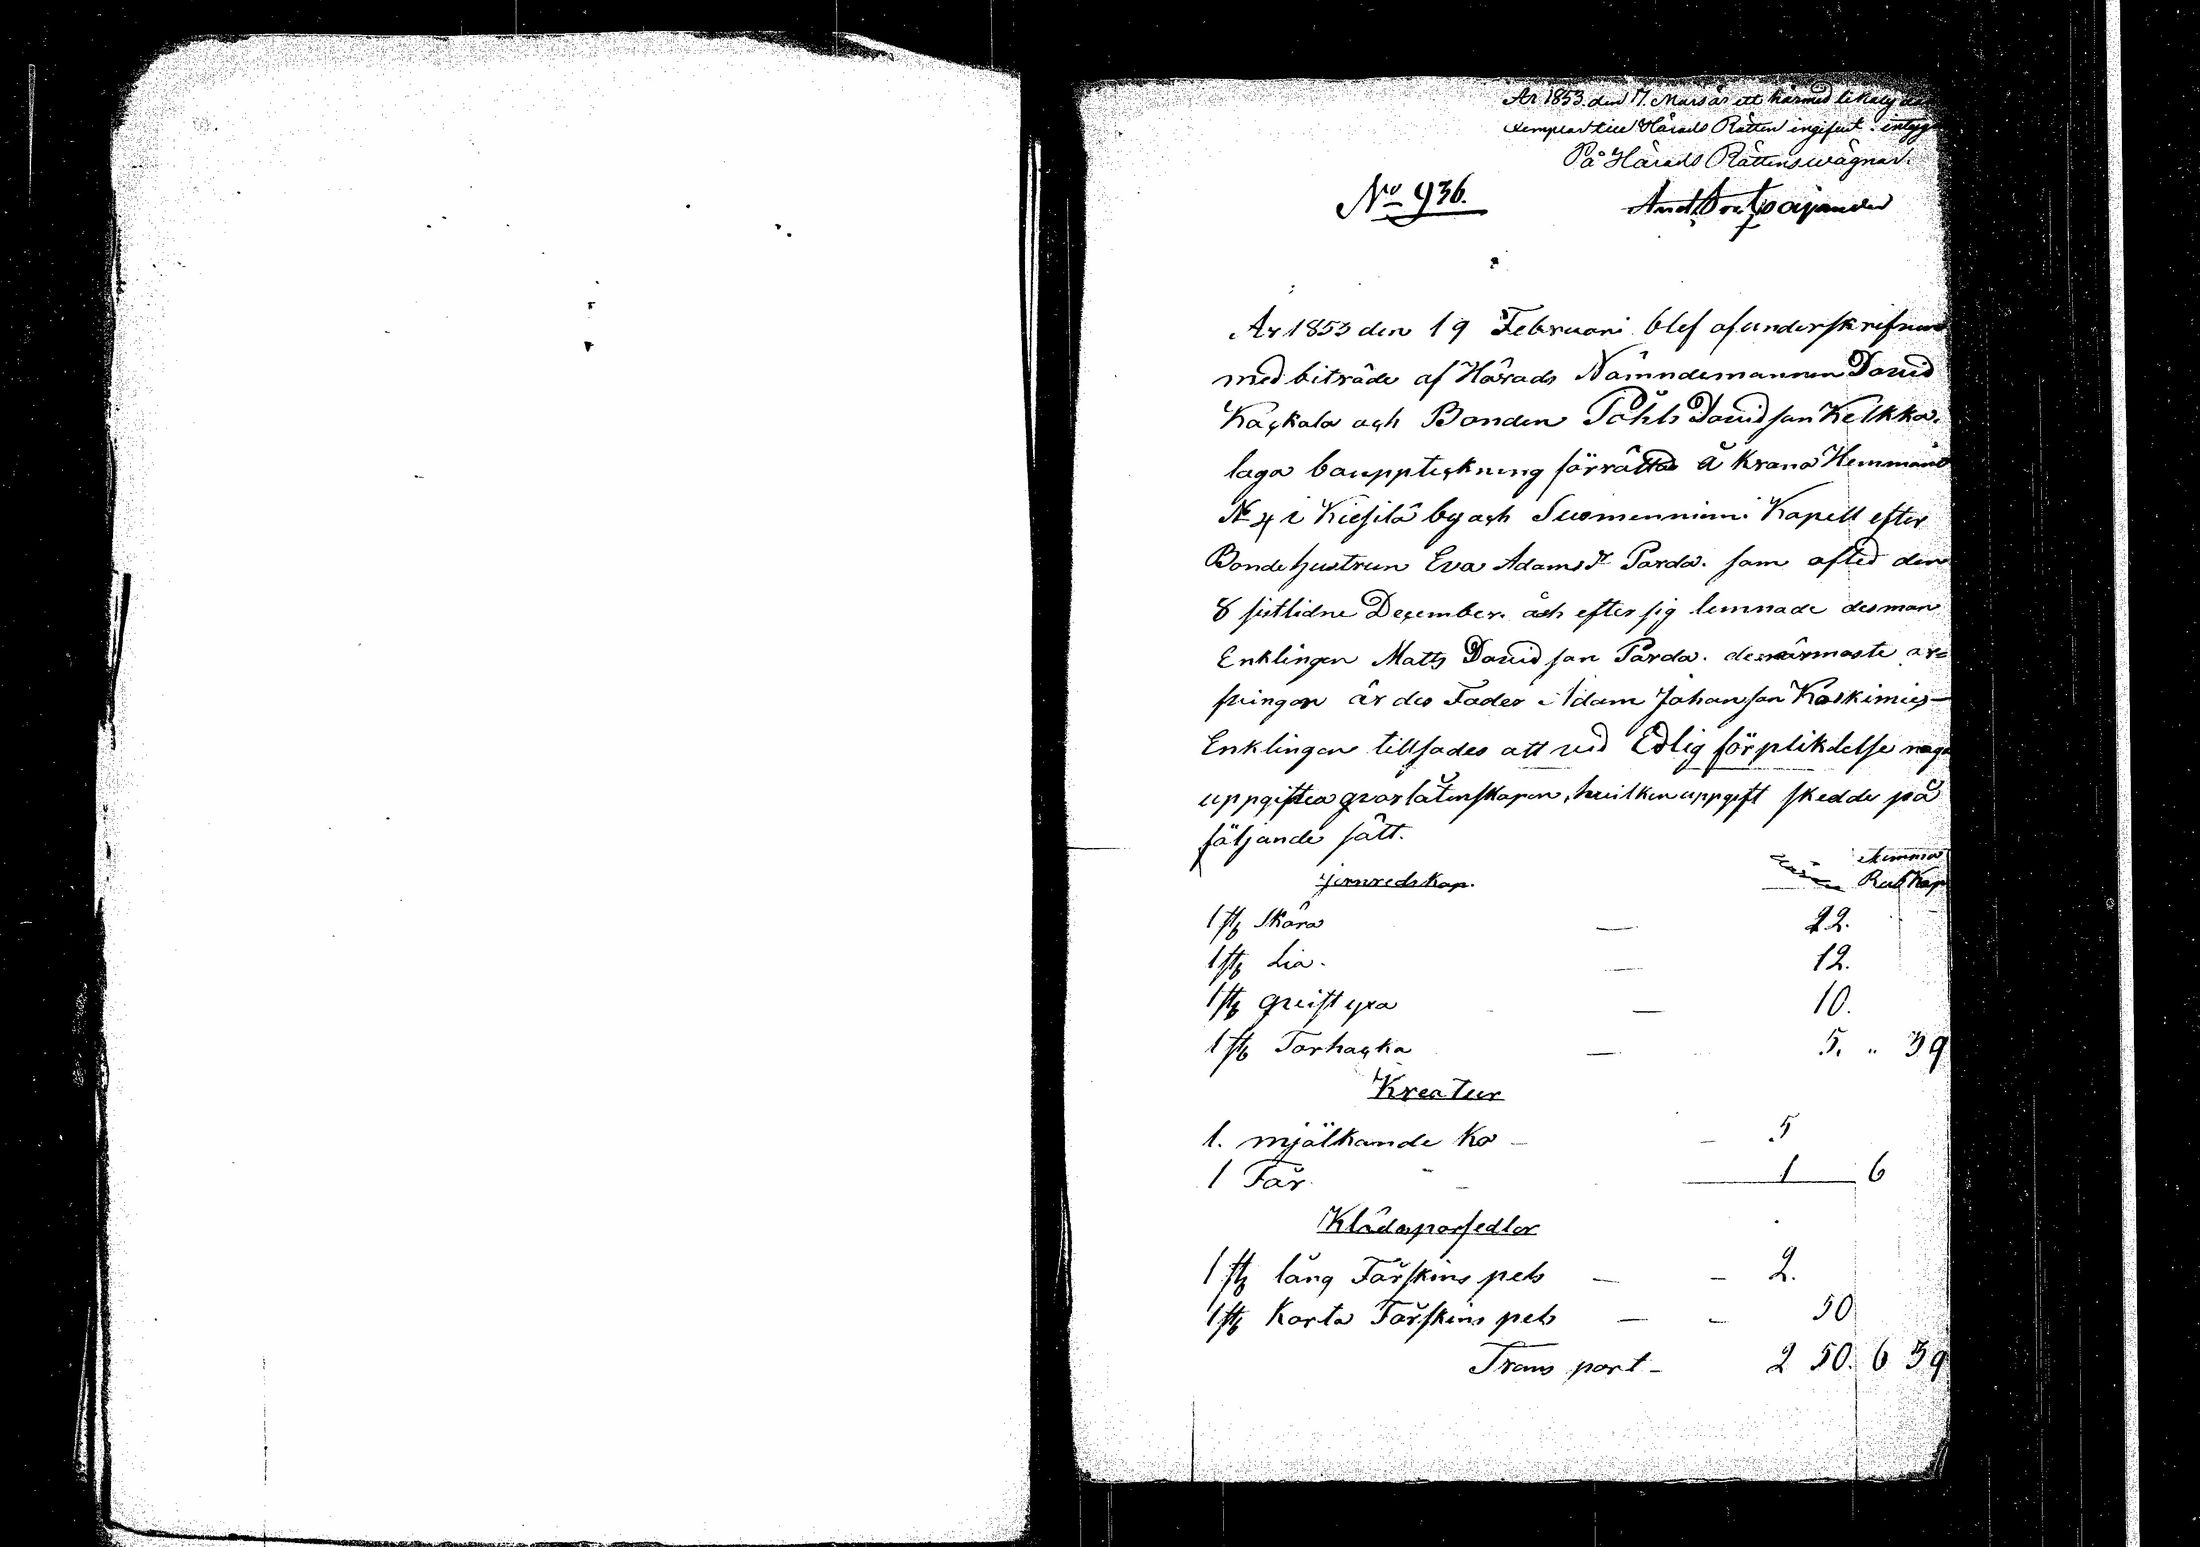 År 1853 den 17. Mars är ett härmed lika lydande
exemplar till Härads Rätten ingifvit. intygar
På Härads Rättens wägnar.
No 936.
År 1853 den 19 Februari blef af underskrifne
med biträde af Härads Nämndemannen David
Kaçkala och Bonden Påhls Davidsson Kelkka.
laga bouppteçkning förrättad å Krono Hemmanet
No 4 i Kiesilä by och Suomenniemi Kapell efter
Bondehustrun Eva Adamsdr Parda. som afled den
8 sistlidne Deçember. åch efter sig lemnade des man
Enklingen Matts Davidson Parda. des närmaste ar=
fvingar är des Fader Adam Johansson Koskimies
Enklingen tillsades att vid Edlig förplikdelse noga
uppgifva qvarlåtenskapen, hvilken uppgift skedde på
följande sätt.
Summa
jernredskap. Rub Kop
1 st Skära — 22.
1 st Lia. — 12.
1 st qvist yxa — 10.
1 st Torhaçka — 5. " 39
Kreatur
1. mjölkande Ko — 5
1 Får — 1 6
Klädespersedlar
1 st lång Fårskins pels — 2.
1 st Korta Fårskins pels — 50
Transport — 2 50. 6 39